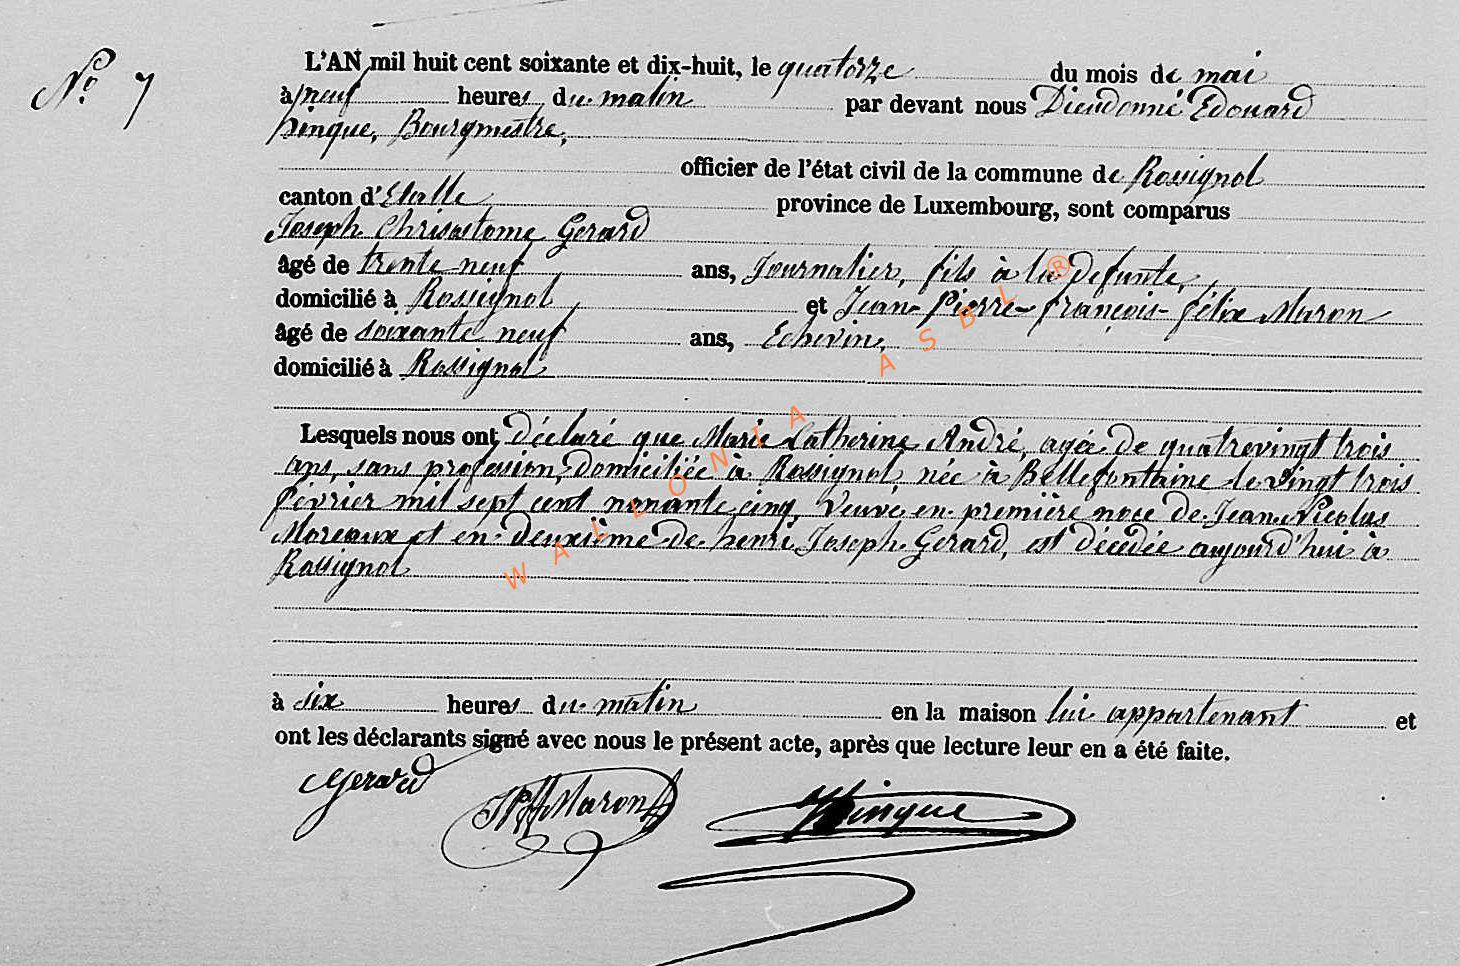 N.º 7
L'AN mil huit cent soixante et dix-huit, le quatorze du mois de mai
à neuf heures du matin par devant nous Dieudonné Edouard
hinque, Bourgmestre,
officier de l'état civil de la commune de Rossignol
canton d'Etalle province de Luxembourg, sont comparus
Joseph Chrisostome Gerard
âgé de trente neuf ans, Journalier, fils à la défunte,
domicilié à Rossignol et Jean-Pierre-françois-félix Maron
âgé de soixante neuf ans, Echevin,
domicilié à Rossignol
Lesquels nous ont déclaré que Marie Catherine André, agée de quatrevingt trois
ans, sans profession, domiciliée à Rossignol, née à Bellefontaine le vingt trois
février mil sept cent nonante cinq, Veuve en première noce de Jean Nicolas
Moreaux et en deuxième de henri Joseph Gerard, est décédée aujourd'hui à
Rossignol
à six heures du matin en la maison lui appartenant et
ont les déclarants signé avec nous le présent acte, après que lecture leur en a été faite.
Gerard Maron hinque
WALLONIA ASBL ®